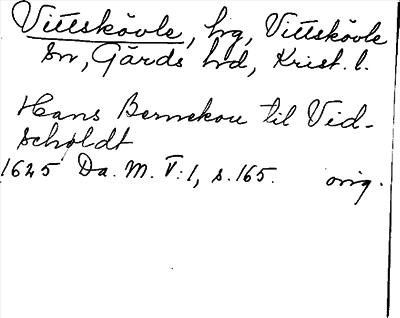 Vittskövle, hg, Vittskövle
sn, Gärds hd, Krist. l.
Hans Bernekou til Vid-
scholdt
1625 Da. M. V:1, s. 165. orig.